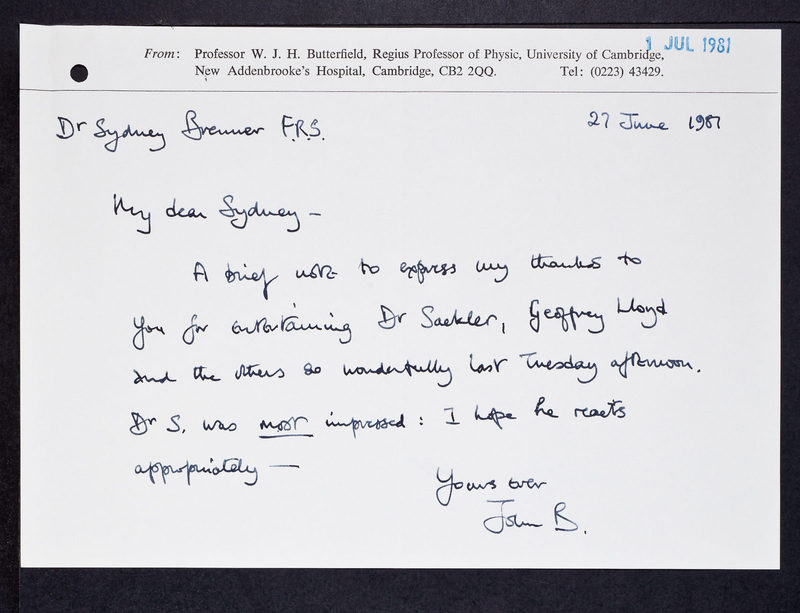 1 JUL 1981
From: Professor W. J. H. Butterfield, Regius Professor of Physic, University of Cambridge,
New Addenbrooke's Hospital, Cambridge, CB2 2QQ. Tel: (0223) 43429.
Dr Sydney Brenner F.R.S. 27 June 1981
My dear Sydney –
A brief note to express my thanks to
you for entertaining Dr Sackler, Geoffrey Lloyd
and the others so wonderfully last Tuesday afternoon.
Dr S. was most impressed: I hope he reacts
appropriately —
Yours ever
John B.